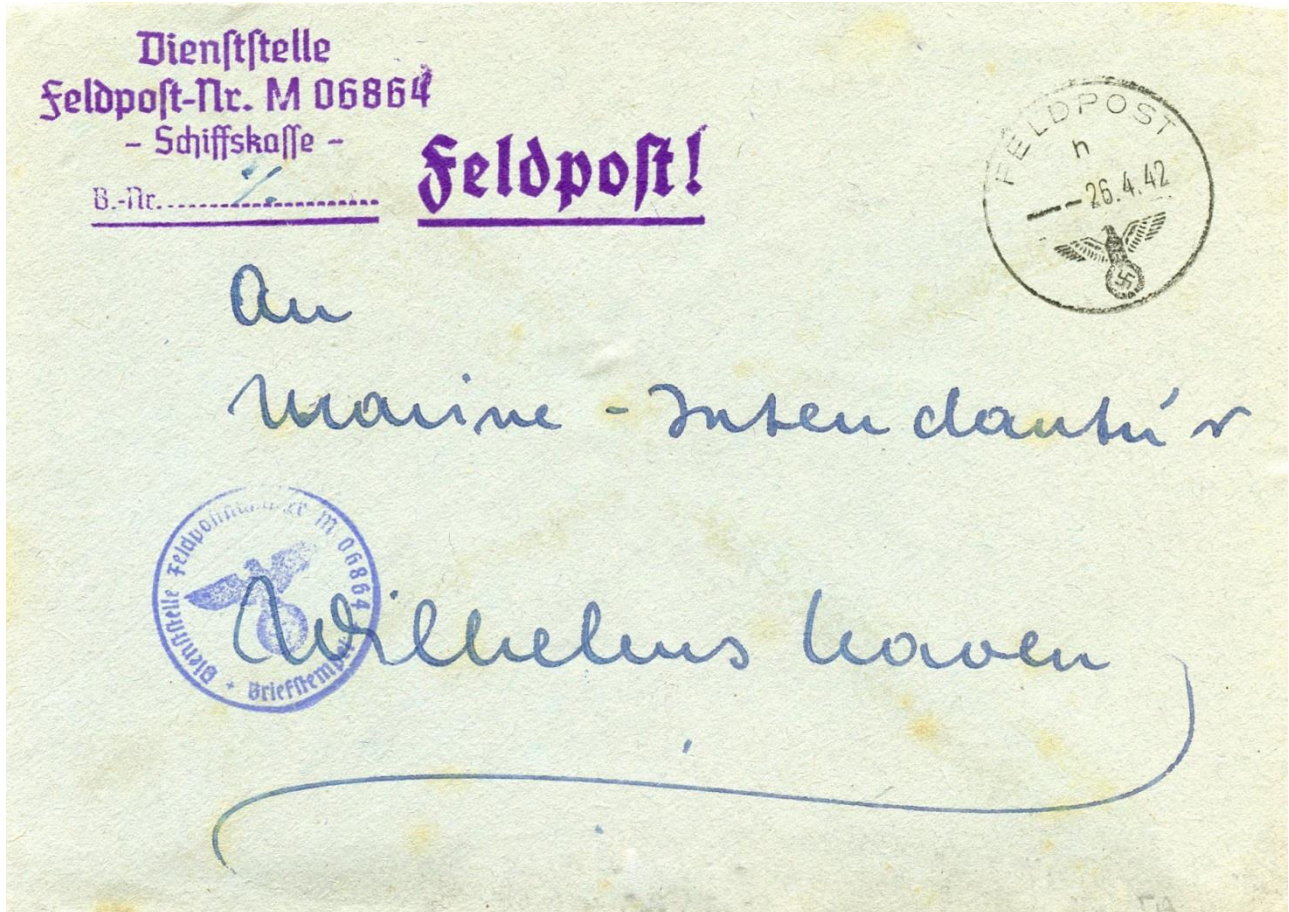 Dienststelle
Feldpost-Nr. M 06864
- Schiffskasse -
B.-Nr. ./.
Feldpost!
FELDPOST
h
--26.4.42
An
Marine - Intendantur
Dienststelle Feldpostnummer M 06864
+ Briefstempel
Wilhelmshaven